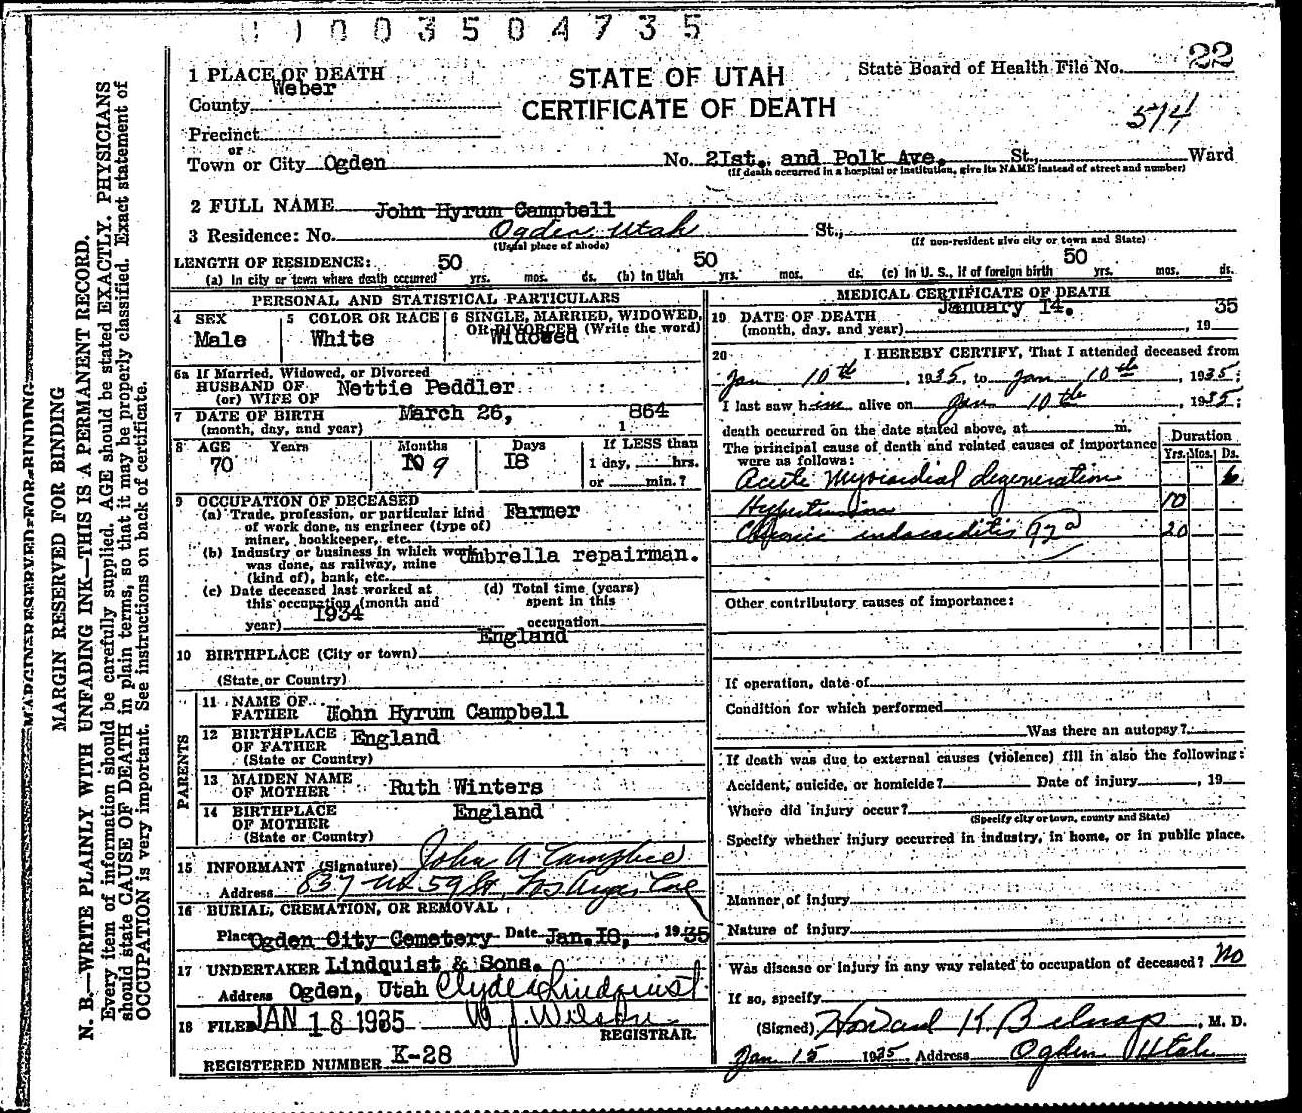 003504735
22
1 PLACE OF DEATH
STATE OF UTAH
State Board of Health File No.
Weber
County
CERTIFICATE OF DEATH
514
Precinct
or
Town or City Ogden No. 2Ist. and Polk Ave. St., Ward
(If death occurred in a hospital or institution, give its NAME instead of street and number)
2 FULL NAME John Hyrum Campbell
3 Residence: No. Ogden Utah St.,
(Usual place of abode) (If non-resident give city or town and State)
LENGTH OF RESIDENCE: 50 50 50
(a) In city or town where death occurred yrs. mos. ds. (b) In Utah yrs. mos. ds. (c) In U. S., if of foreign birth yrs. mos. ds.
PERSONAL AND STATISTICAL PARTICULARS
4 SEX 5 COLOR OR RACE 6 SINGLE, MARRIED, WIDOWED, OR DIVORCED (Write the word)
Male White Widowed
6a If Married, Widowed, or Divorced
HUSBAND OF Nettie Peddler
(or) WIFE OF
7 DATE OF BIRTH March 26, 1 864
(month, day, and year)
8 AGE Years Months Days If LESS than
70 10 9 I8 1 day, hrs.
or min.?
9 OCCUPATION OF DECEASED
(a) Trade, profession, or particular kind Farmer
of work done, as engineer (type of)
miner, bookkeeper, etc.
(b) Industry or business in which work Umbrella repairman.
was done, as railway, mine
(kind of), bank, etc.
(c) Date deceased last worked at (d) Total time (years)
this occupation (month and spent in this
year) 1934 occupation
England
10 BIRTHPLACE (City or town)
(State or Country)
PARENTS
11 NAME OF
FATHER John Hyrum Campbell
12 BIRTHPLACE England
OF FATHER
(State or Country)
13 MAIDEN NAME
OF MOTHER Ruth Winters
14 BIRTHPLACE England
OF MOTHER
(State or Country)
15 INFORMANT (Signature) John A Campbell
Address 837 No. 59 St, Los Angeles Cal
16 BURIAL, CREMATION, OR REMOVAL
Place Ogden City Cemetery Date Jan. I8, 1935
17 UNDERTAKER Lindquist & Sons.
Address Ogden, Utah Clyde Lindquist
18 FILED JAN 18 1935 W J. Wilson
REGISTRAR.
REGISTERED NUMBER K-28
MEDICAL CERTIFICATE OF DEATH
19 DATE OF DEATH January I4. 35
(month, day, and year) , 19
20 I HEREBY CERTIFY, That I attended deceased from
Jan 10th, 1935, to Jan 10th, 1935;
I last saw him alive on Jan 10th, 1935;
death occurred on the date stated above, at m.
The principal cause of death and related causes of importance
were as follows:
Duration
Yrs. Mos. Ds.
Acute Myocardial degeneration 6
Hypertension 10
Chronic endocarditis 92a 20
Other contributory causes of importance:
If operation, date of
Condition for which performed
Was there an autopsy?
If death was due to external causes (violence) fill in also the following:
Accident, suicide, or homicide? Date of injury , 19
Where did injury occur?
(Specify city or town, county and State)
Specify whether injury occurred in industry, in home, or in public place.
Manner of injury
Nature of injury
Was disease or injury in any way related to occupation of deceased? No
If so, specify
(Signed) Howard K. Belnap, M. D.
Jan 15 1935. Address Ogden Utah
MARGIN RESERVED FOR BINDING
MARGIN RESERVED FOR BINDING
N. B.—WRITE PLAINLY WITH UNFADING INK—THIS IS A PERMANENT RECORD.
Every item of information should be carefully supplied. AGE should be stated EXACTLY. PHYSICIANS
should state CAUSE OF DEATH in plain terms, so that it may be properly classified. Exact statement of
OCCUPATION is very important. See instructions on back of certificate.